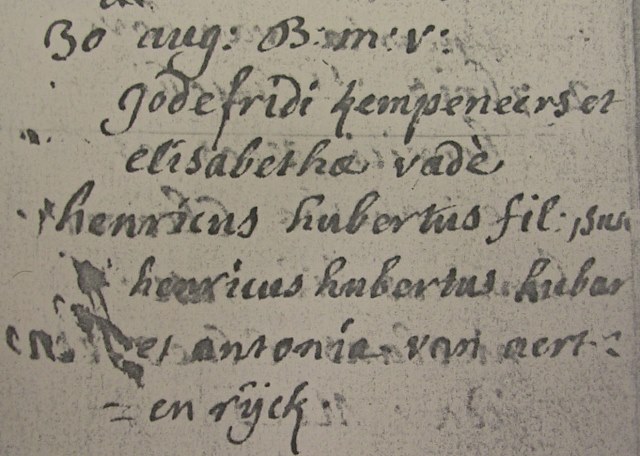 30 aug: B: m: v:
Jodefridi kempeneers et
elisabethæ vadè
henricus hubertus fil: sus
henricus hubertus hubar
et antonia van aert=
=en rijck.